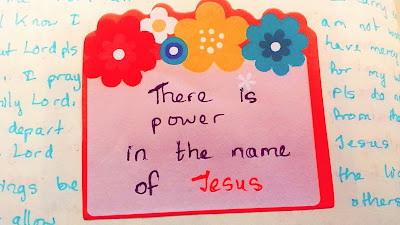 I know I
Lord pls
I pray
Lord,
depart
Lord
be
allow
There is
power
in the name
of Jesus
I carry
am not
have
for my
pls do
from
Jesus
the
others